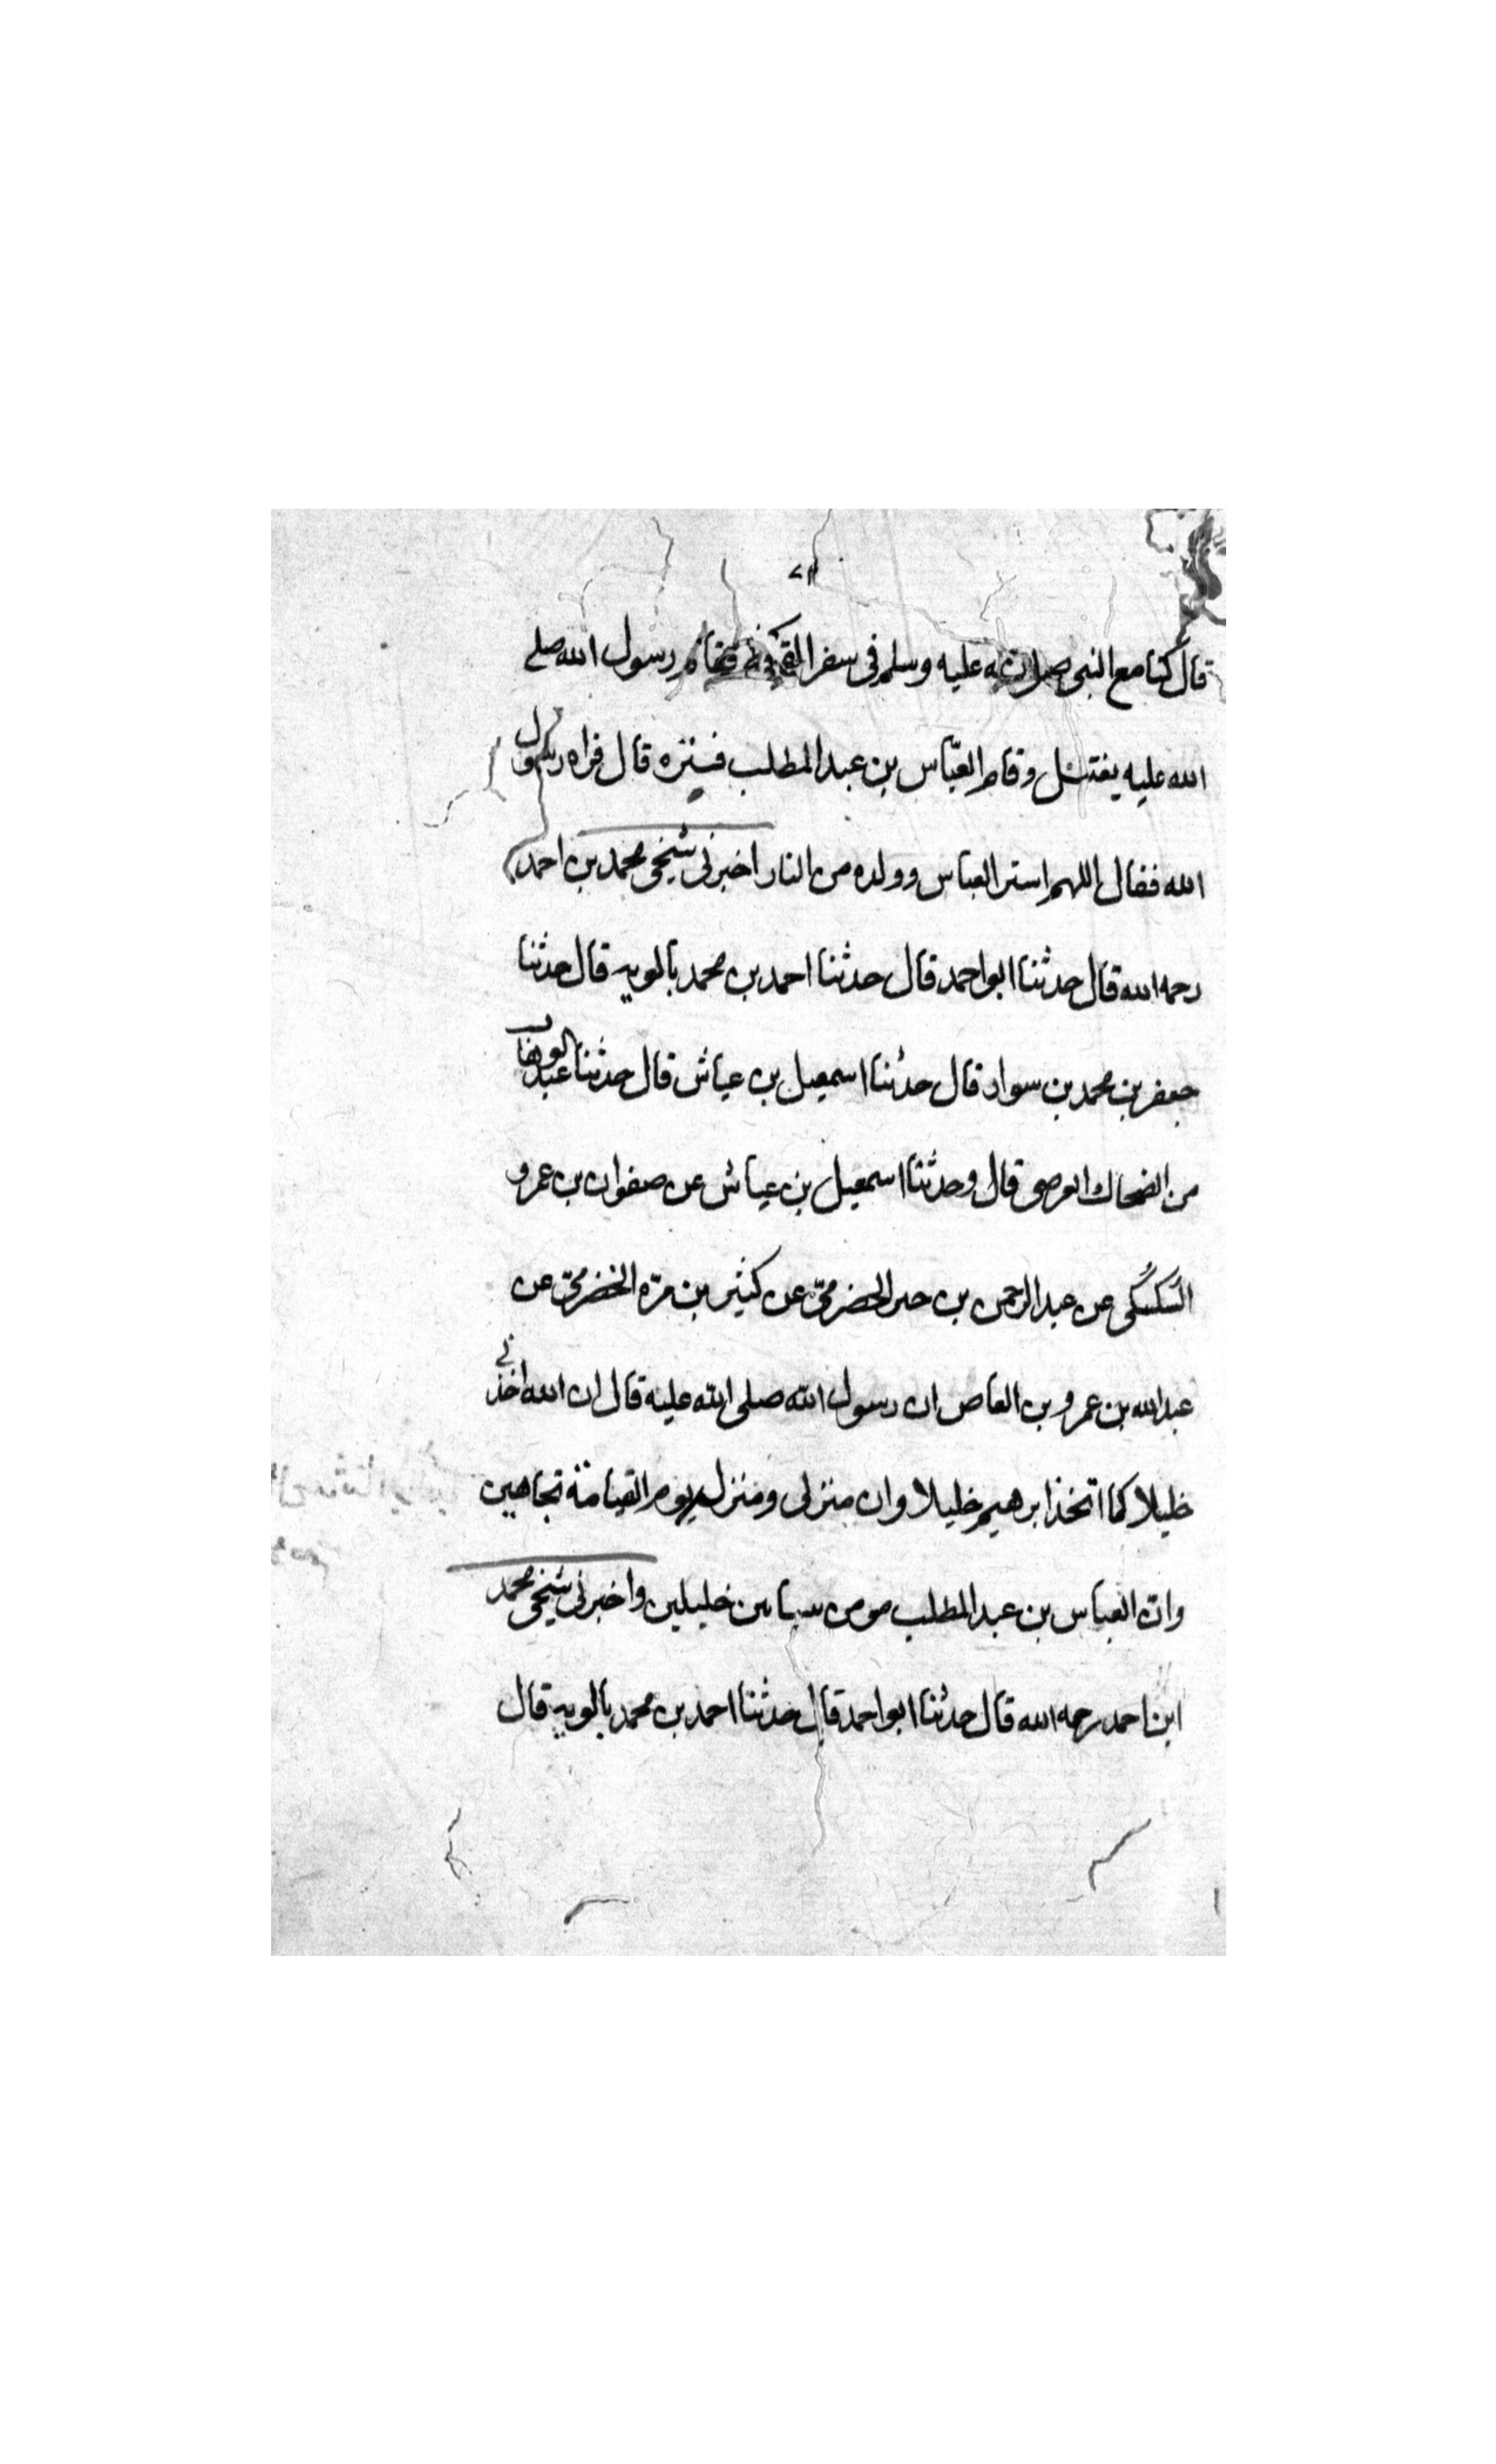 قال كنا مع النبي صلى الله عليه وسلم في سفر رسول الله صلى
الله عليه يغتسل وقام العبّاس بن عبد المطلب فستره قال فراه رسول
الله فقال اللهم استر العباس وولده من النار اخبرني شيخي محمد بن احمد
رحمه الله قال حدثنا ابو احمد قال حدثنا احمد بن محمد بالويه قال حدثنا
جعفر بن محمد بن سوار قال حدثنا اسمعيل بن عياش قال حدثنا عبد الوهاب
من الضحاك العرضى قال وحدثنا اسمعيل بن عياش عن صفوان بن عمرو
السكسكى عن عبد الرحمن بن الحضرمىّ عن كثير بن مرّه الحضرمىّ عن
عبد الله بن عمرو بن العاص ان رسول الله صلى الله عليه قال ان الله اتخذنى
خليلا كما اتخذ ابرهيم خليلا وان منزلى ومنزل يوم القيامة تجاهين
وانّ العباس بن عبد المطلب خليلين واخبرنى شيخى محمد
ابن احمد رحمه الله قال حدثنا ابو احمد قال حدثنا احمد بن محمد بالويه قال